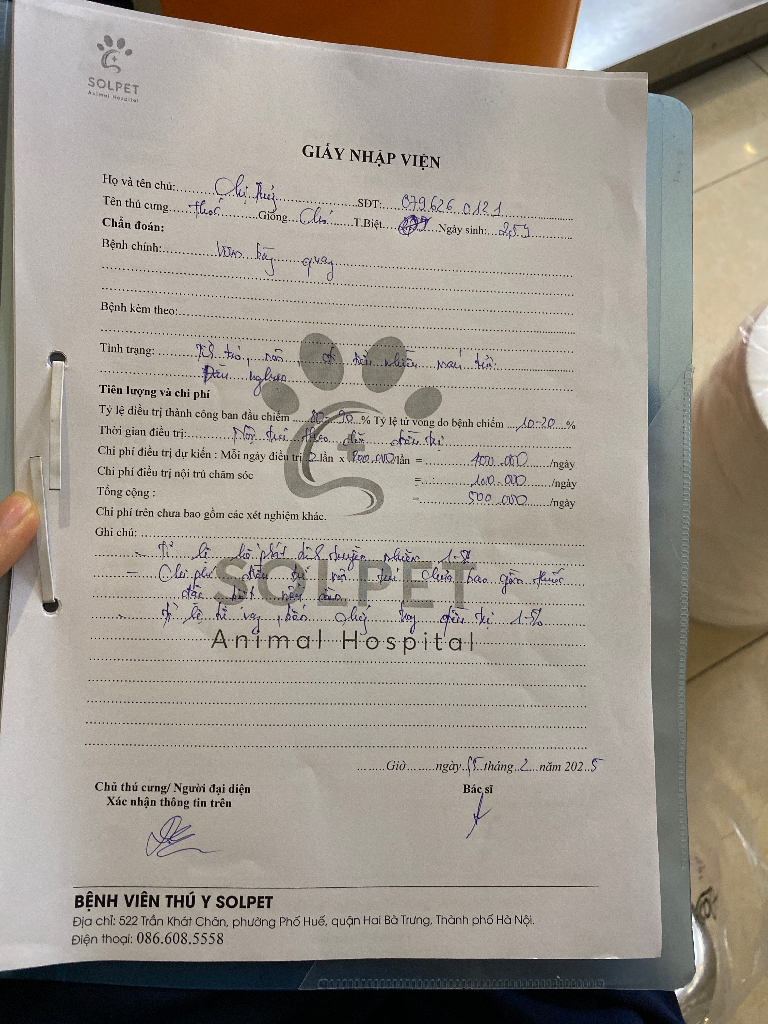 SOLPET
Animal Hospital
GIẤY NHẬP VIỆN
Họ và tên chủ: Chị Thuỷ SĐT: 079626 0121
Tên thú cưng Thóc Giống Chó T.Biệt Ngày sinh: 2,5y
Chẩn đoán:
Bệnh chính: quay
Bệnh kèm theo:
Tình trạng: nhiều máu
Tiên lượng và chi phí
Tỷ lệ điều trị thành công ban đầu chiếm 80-90 % Tỷ lệ tử vong do bệnh chiếm 10-20 %
Thời gian điều trị: Nội trú theo dõi điều trị
Chi phí điều trị dự kiến : Mỗi ngày điều trị 2 lần x /lần = 400.000 /ngày
Chi phí điều trị nội trú chăm sóc = 100.000 /ngày
Tổng cộng : = 500.000 /ngày
Chi phí trên chưa bao gồm các xét nghiệm khác.
Ghi chú:
- Tỉ lệ nhiễm 1-5%
- Chi phí điều trị nội trú chưa bao gồm thuốc
đặc biệt nếu cần
- Tỉ lệ điều trị 1-5%
SOLPET
Animal Hospital
Giờ ngày 15 tháng 2 năm 2025
Chủ thú cưng/ Người đại diện Bác sĩ
Xác nhận thông tin trên
BỆNH VIÊN THÚ Y SOLPET
Địa chỉ: 522 Trần Khát Chân, phường Phố Huế, quận Hai Bà Trưng, Thành phố Hà Nội.
Điện thoại: 086.608.5558